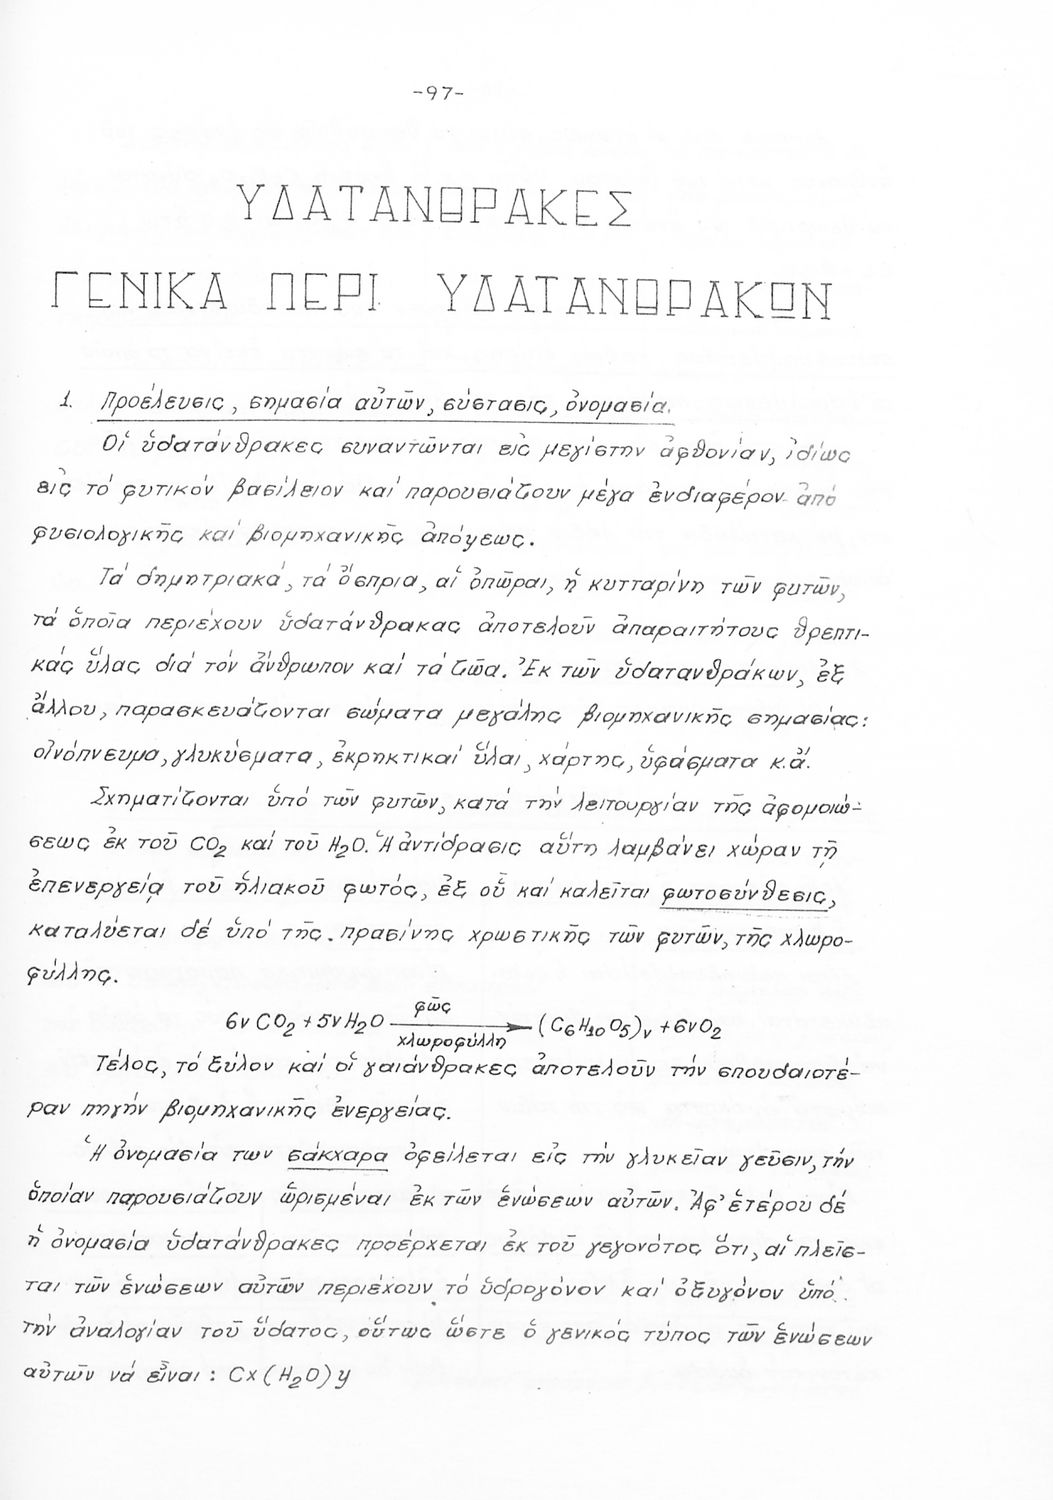 -97-
ΥΔΑΤΑΝΘΡΑΚΕΣ
ΓΕΝΙΚΑ ΠΕΡΙ ΥΔΑΤΑΝΘΡΑΚΩΝ
1. Προέλευσις, σημασία αὐτῶν, σύστασις, ὀνομασία.
Οἱ ὑδατάνθρακες συναντῶνται εἰς μεγίστην ἀφθονίαν, ἰδίως
εἰς τό φυτικόν βασίλειον καί παρουσιάζουν μέγα ἐνδιαφέρον ἀπό
φυσιολογικῆς καί βιομηχανικῆς ἀπόψεως.
Τά δημητριακά, τά ὄσπρια, αἱ ὀπῶραι, ἡ κυτταρίνη τῶν φυτῶν,
τά ὁποῖα περιέχουν ὑδατάνθρακας ἀποτελοῦν ἀπαραιτήτους θρεπτι-
κάς ὕλας διά τόν ἄνθρωπον καί τά ζῶα. Ἐκ τῶν ὑδατανθράκων, ἐξ
ἄλλου, παρασκευάζονται σώματα μεγάλης βιομηχανικῆς σημασίας:
οἰνόπνευμα, γλυκύσματα, ἐκρηκτικαί ὗλαι, χάρτης, ὑφάσματα κ.ἄ.
Σχηματίζονται ὑπό τῶν φυτῶν, κατά τήν λειτουργίαν τῆς ἀφομοιώ-
σεως ἐκ τοῦ CO₂ καί τοῦ H₂O. Ἡ ἀντίδρασις αὕτη λαμβάνει χώραν τῇ
ἐπενεργείᾳ τοῦ ἡλιακοῦ φωτός, ἐξ οὗ καί καλεῖται φωτοσύνθεσις,
καταλύεται δέ ὑπό τῆς. πρασίνης χρωστικῆς τῶν φυτῶν, τῆς χλωρο-
φύλλης.
6ν CO₂ + 5ν H₂O φῶς χλωροφύλλη → (C₆H₁₀O₅)ᵥ + 6νO₂
Τέλος, τό ξύλον καί οἱ γαιάνθρακες ἀποτελοῦν τήν σπουδαιοτέ-
ραν πηγήν βιομηχανικῆς ἐνεργείας.
Ἡ ὀνομασία των σάκχαρα ὀφείλεται εἰς τήν γλυκεῖαν γεῦσιν, τήν
ὁποίαν παρουσιάζουν ὡρισμέναι ἐκ τῶν ἑνώσεων αὐτῶν. Ἀφ' ἑτέρου δέ
ἡ ὀνομασία ὑδατάνθρακες προέρχεται ἐκ τοῦ γεγονότος ὅτι, αἱ πλεῖσ-
ται τῶν ἑνώσεων αὐτῶν περιέχουν τό ὑδρογόνον καί ὀξυγόνον ὑπό
τήν ἀναλογίαν τοῦ ὕδατος, οὕτως ὥστε ὁ γενικός τύπος τῶν ἑνώσεων
αὐτῶν νά εἶναι : Cx(H₂O)y